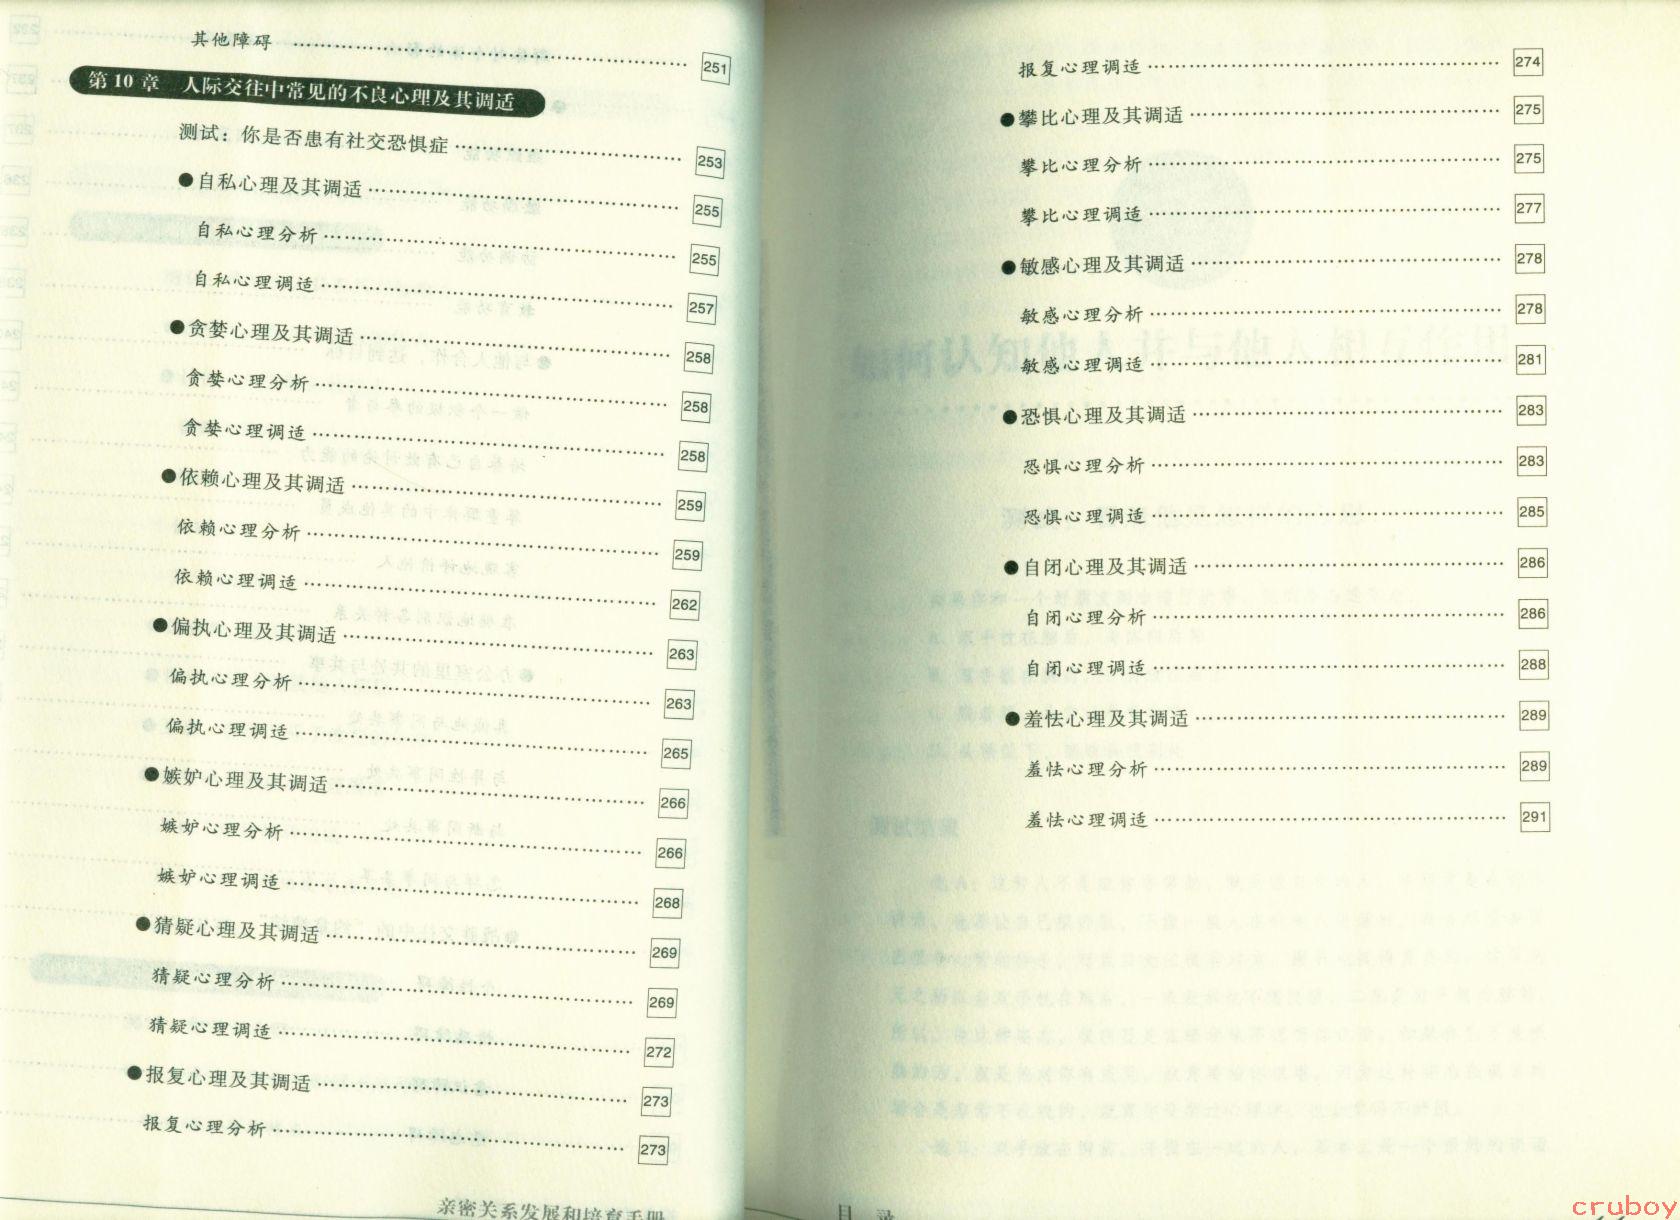 其他障碍 …… 251
第 10 章 人际交往中常见的不良心理及其调适
测试：你是否患有社交恐惧症 …… 253
●自私心理及其调适 …… 255
自私心理分析 …… 255
自私心理调适 …… 257
●贪婪心理及其调适 …… 258
贪婪心理分析 …… 258
贪婪心理调适 …… 258
●依赖心理及其调适 …… 259
依赖心理分析 …… 259
依赖心理调适 …… 262
●偏执心理及其调适 …… 263
偏执心理分析 …… 263
偏执心理调适 …… 265
●嫉妒心理及其调适 …… 266
嫉妒心理分析 …… 266
嫉妒心理调适 …… 268
●猜疑心理及其调适 …… 269
猜疑心理分析 …… 269
猜疑心理调适 …… 272
●报复心理及其调适 …… 273
报复心理分析 …… 273
亲密关系发展和培育手册
报复心理调适 …… 274
●攀比心理及其调适 …… 275
攀比心理分析 …… 275
攀比心理调适 …… 277
●敏感心理及其调适 …… 278
敏感心理分析 …… 278
敏感心理调适 …… 281
●恐惧心理及其调适 …… 283
恐惧心理分析 …… 283
恐惧心理调适 …… 285
●自闭心理及其调适 …… 286
自闭心理分析 …… 286
自闭心理调适 …… 288
●羞怯心理及其调适 …… 289
羞怯心理分析 …… 289
羞怯心理调适 …… 291
目 录
cruboy